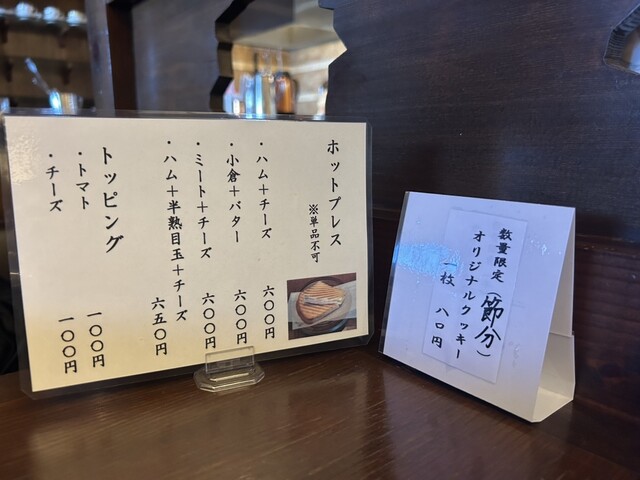 ホットプレス
※単品不可
・ハム＋チーズ 六〇〇円
・小倉＋バター 六〇〇円
・ミート＋チーズ 六〇〇円
・ハム＋半熟目玉＋チーズ 六五〇円
トッピング
・トマト 一〇〇円
・チーズ 一〇〇円
数量限定（節分）
オリジナルクッキー
一枚 八〇円